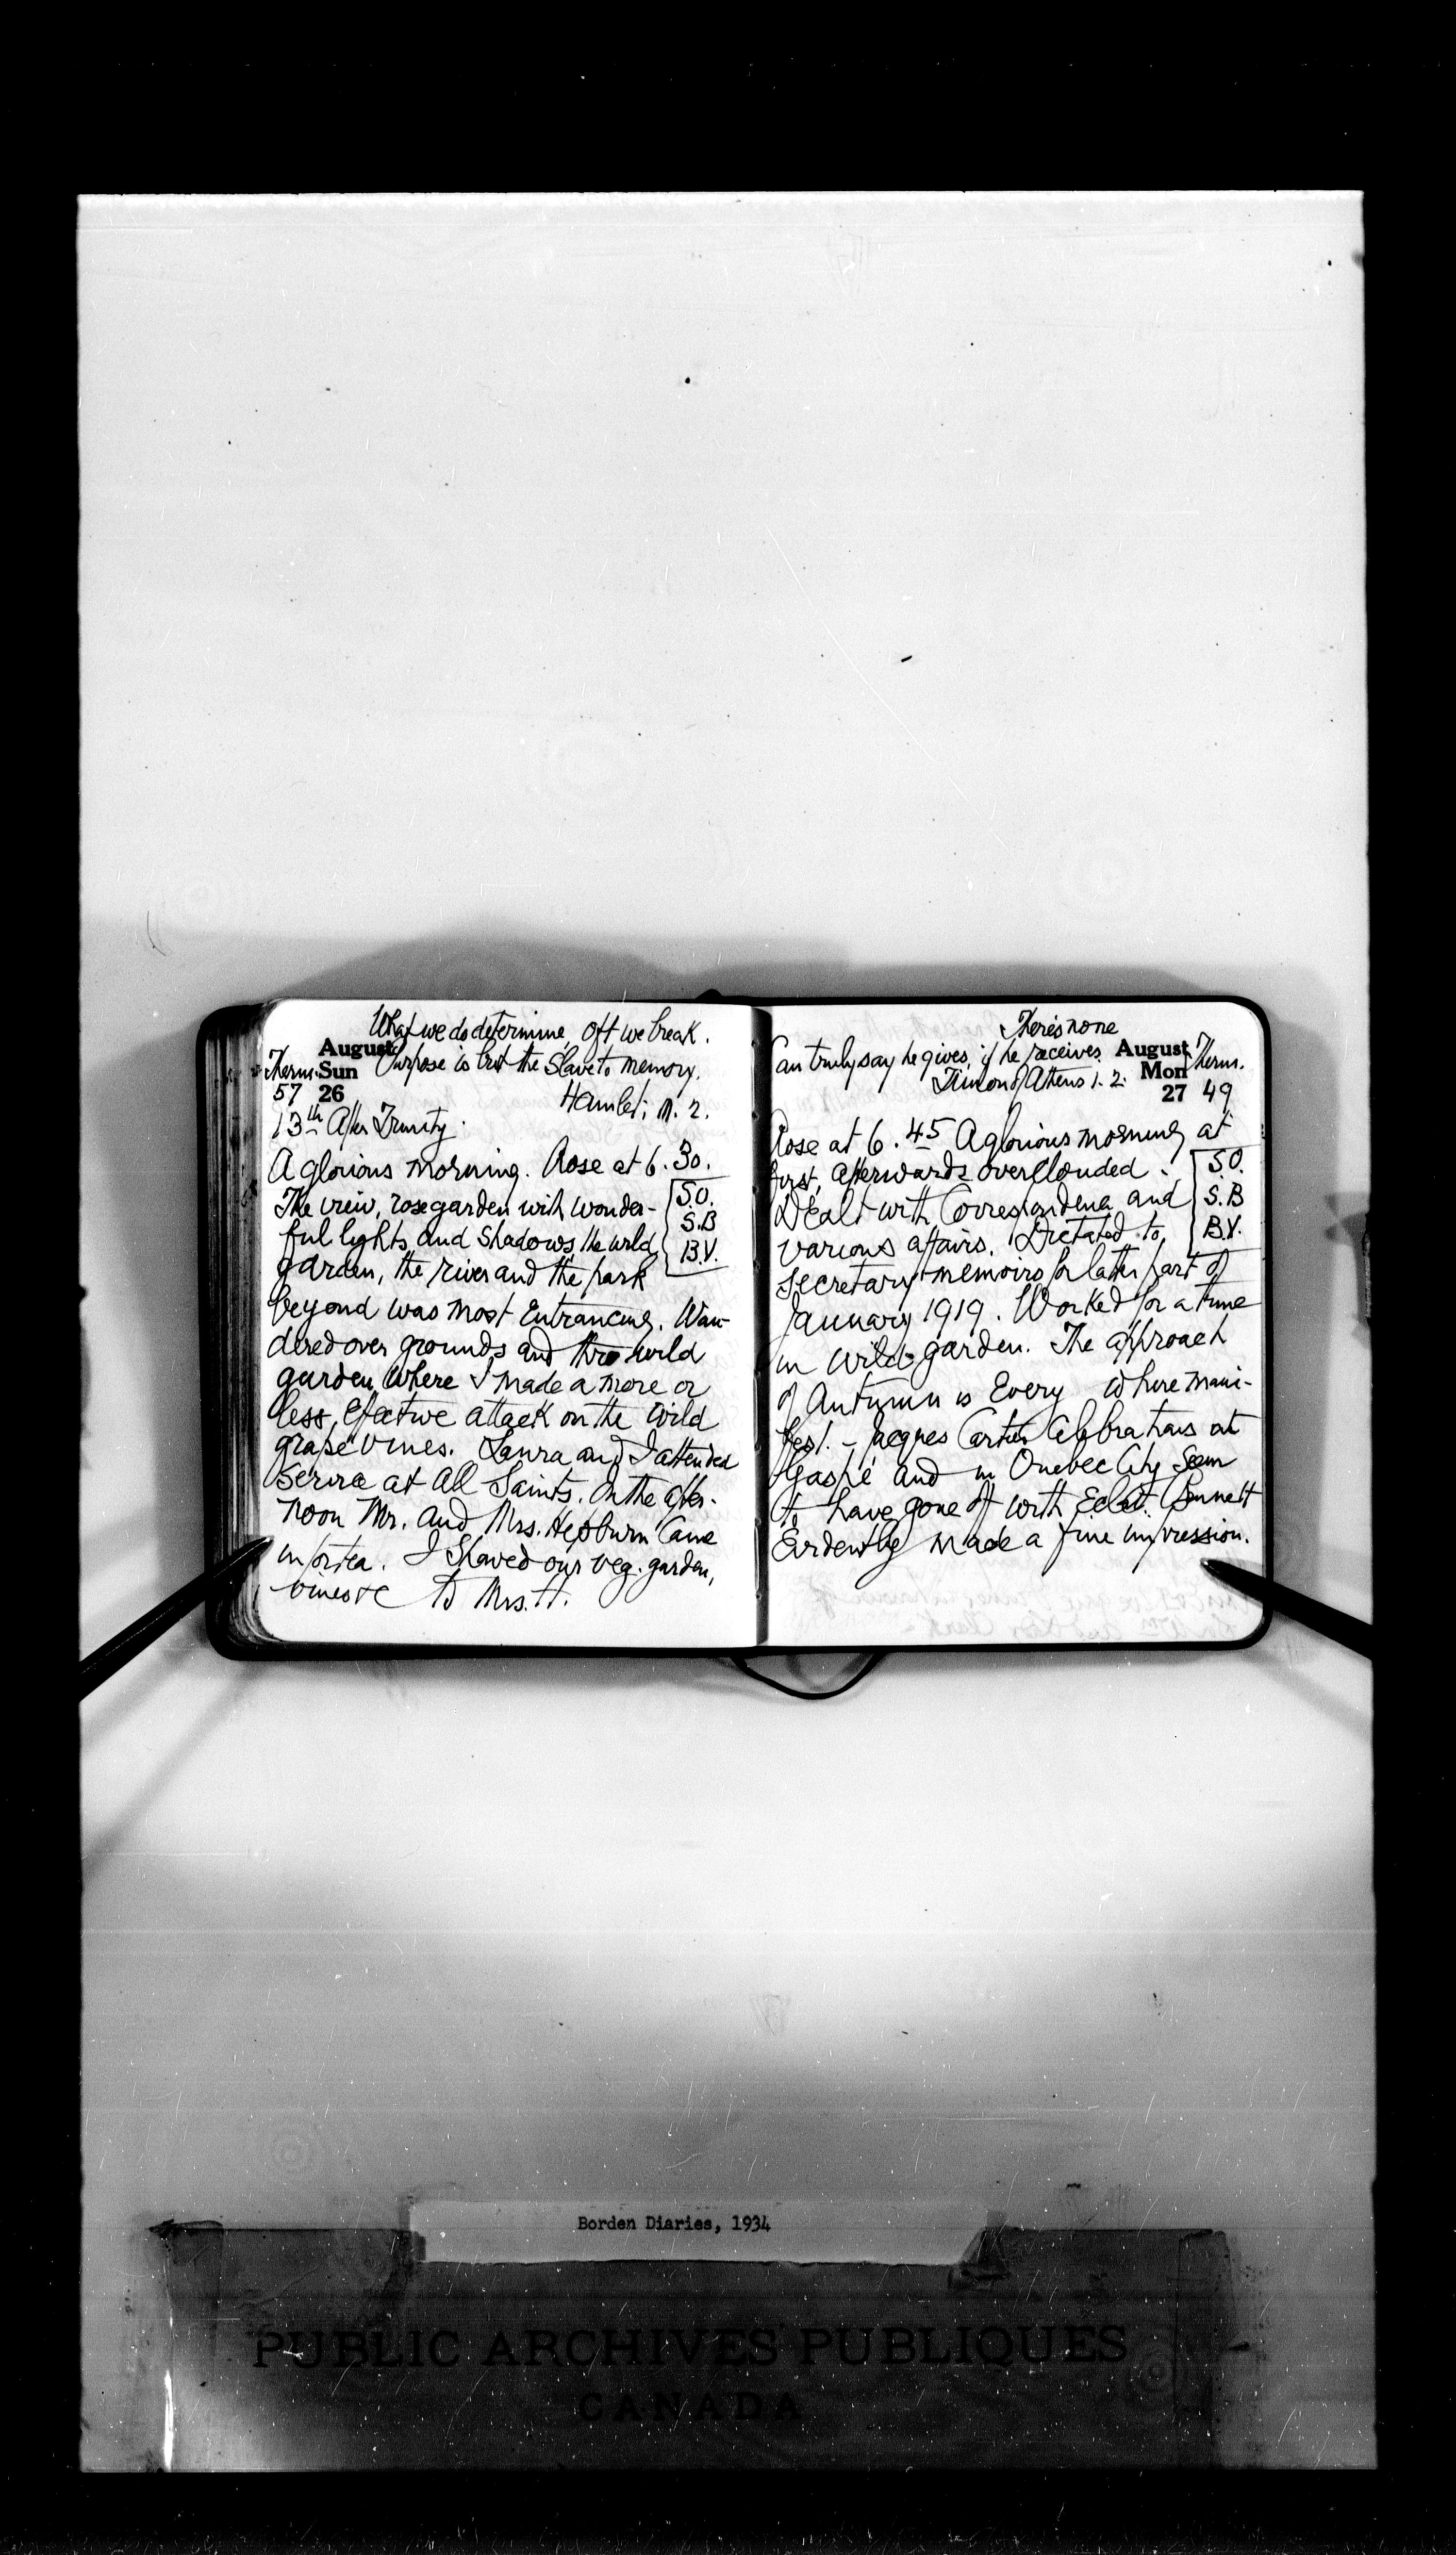 What we do determine, oft we break.
August Purpose is but the Slave to memory.
Therm. Sun
57 26 Hamlet; III. 2.
13th After Trinity.
A glorious morning. Rose at 6.30.
The view, rose garden with wonder-
ful lights and Shadows, the wild
garden, the river and the park
S.O.
S.B
B.V.
beyond was most Entrancing. Wan-
dered over grounds and thro wild
garden where I made a more or
less, efective attack on the wild
grape vines. Laura and I attended
Service at All Saints. In the after-
noon Mr. and Mrs. Hepburn Came
in for tea. I Showed our veg. garden,
vines &c to Mrs. H.
There's none
Can truly say he gives, if he receives. August Therm.
Timon of Athens 1. 2. Mon
27 49
Rose at 6.45 A glorious morning at
first, afterwards overclouded.
Dealt with Correspondence and
various affairs. Dictated to
S.O.
S.B
B.V.
Secretary memoirs for latter part of
January 1919. Worked for a time
in wild-garden. The approach
of Autumn is Every where mani-
fest. - Jacques Cartier Celebrations at
Gaspé and in Quebec City Seem
to have gone off with Eclat. Bennett
Evidently made a fine impression.
Borden Diaries, 1934
PUBLIC ARCHIVES PUBLIQUES
CANADA